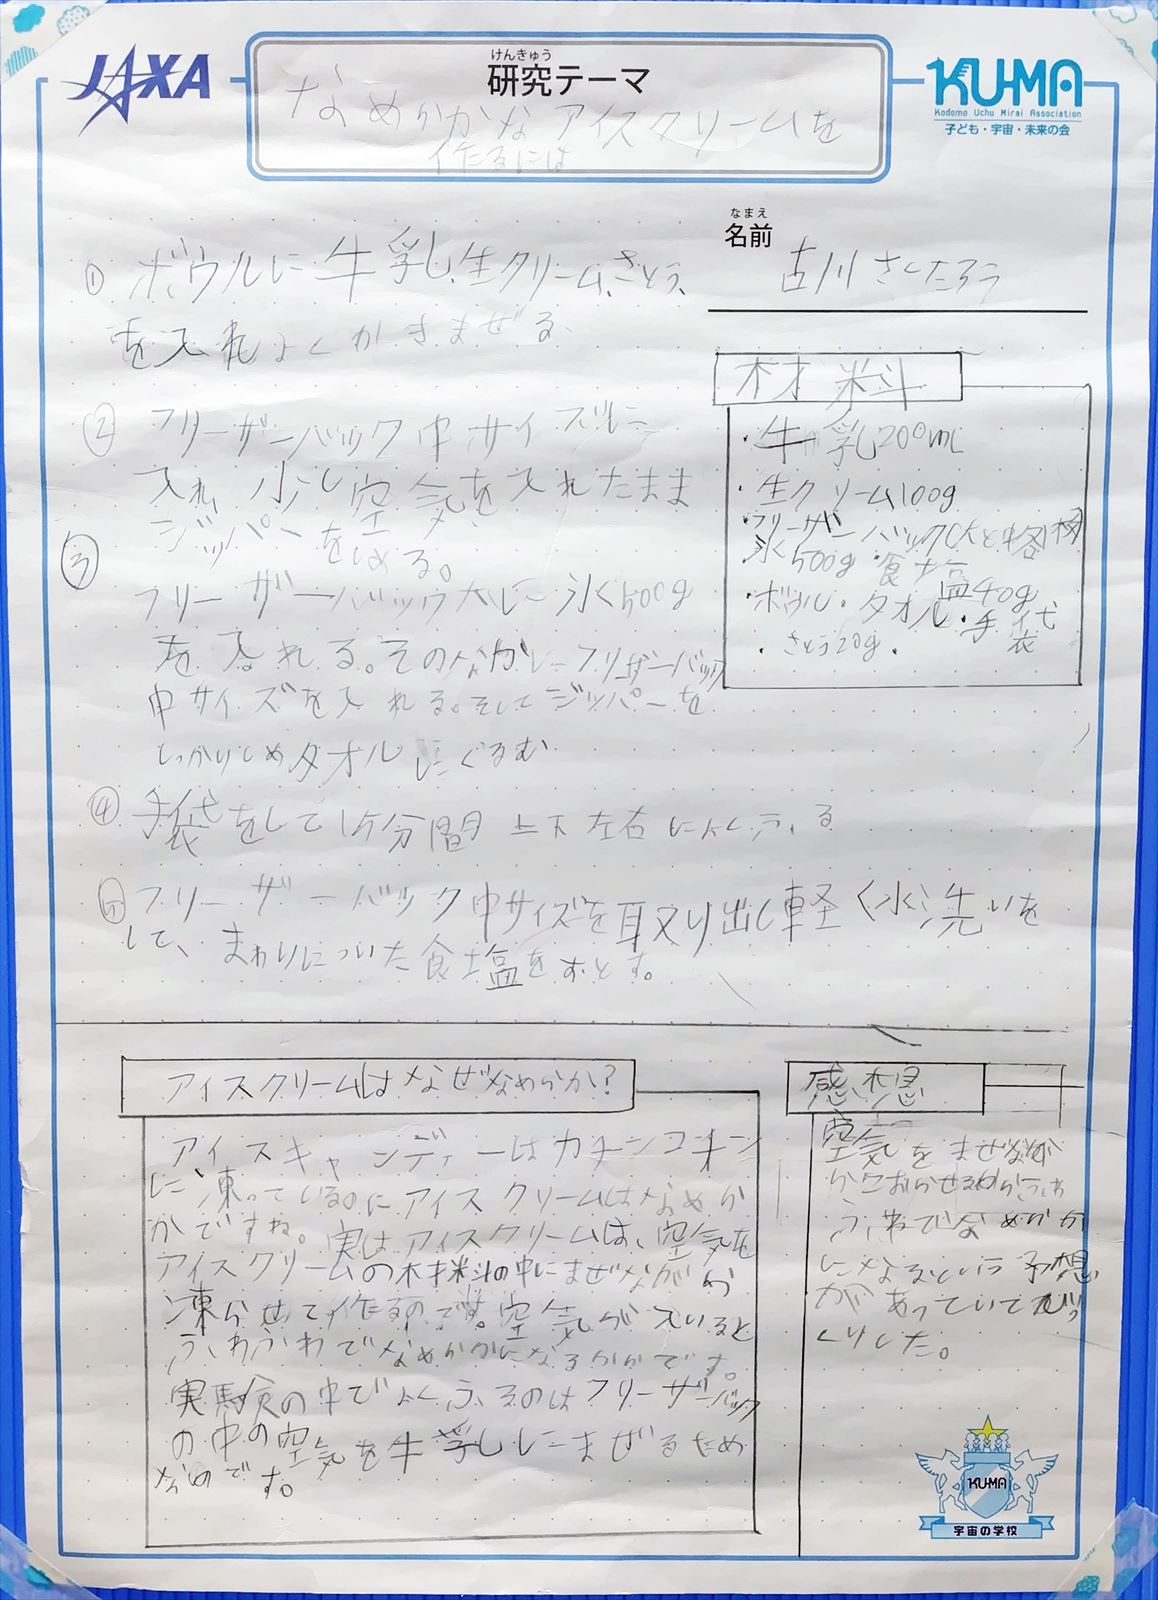 JAXA
けんきゅう
研究テーマ
KU-MA
Kodomo Uchu Mirai Association
子ども・宇宙・未来の会
なめらかなアイスクリームを
作るには
なまえ
名前
古川さくたろう
① ボウルに牛乳、生クリーム、さとう、
を入れよくかきまぜる、
② フリーザーバック中サイズに
入れ、少し空気を入れたまま
ジッパーをしめる。
③
フリーザーバック大に氷500g
を入れる。そのなかにフリーザーバック
中サイズを入れる。そしてジッパーを
しっかりしめタオルにくるむ
④ 手袋をして15分間上下左右によくふる
⑤ フリーザーバック中サイズを取り出し軽く水洗いを
して、まわりについた食塩をおとす。
材料
・牛乳200mL
・生クリーム100g
・フリーザーバック(大と中各1枚
氷500g・食塩40g
・ボウル・タオル・手袋
・さとう20g・
アイスクリームはなぜなめらか?
アイスキャンディーはカチンコチン
に凍っているのにアイスクリームはなめら
かですね。実はアイスクリームは、空気を
アイスクリームの材料の中にまぜながら
凍らせて作るのです。空気が入いると
ふわふわでなめらかになるからです。
実験の中でよくふるのはフリーザーバック
の中の空気を牛乳にまぜるため
なのです。
感想
空気をまぜなが
らこおらせるからふわ
ふわでなめらか
になるという予想
があっていてびっ
くりした。
KU-MA
宇宙の学校